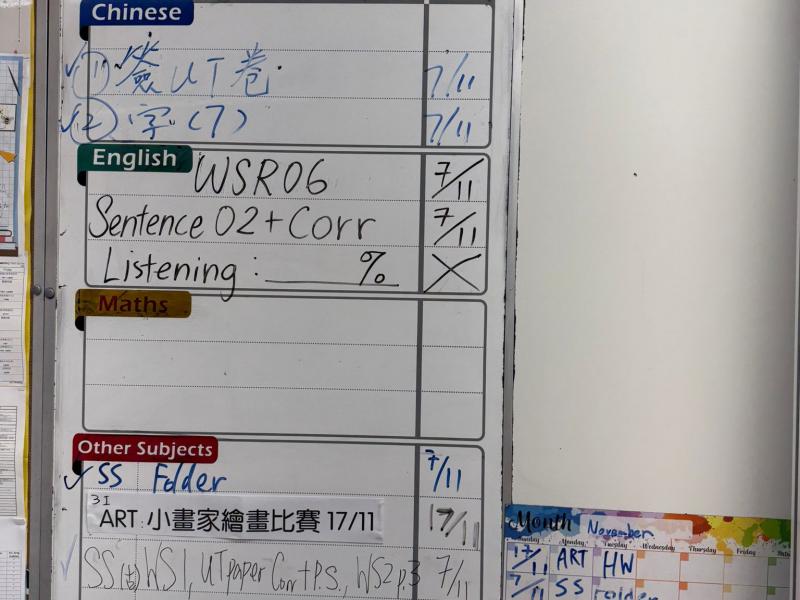 Chinese
(1) 簽UT卷 7/11
(2) 字(7) 7/11
English
WSR06 7/11
Sentence 02+Corr 7/11
Listening : ____%
Maths
Other Subjects
SS Folder 7/11
3I
ART : 小畫家繪畫比賽 17/11 17/11
SS WS1, UT paper Corr + P.S., WS2 p.3 7/11
Month November
Monday Tuesday Wednesday Thursday Friday
17/11 ART HW
7/11 SS Folder